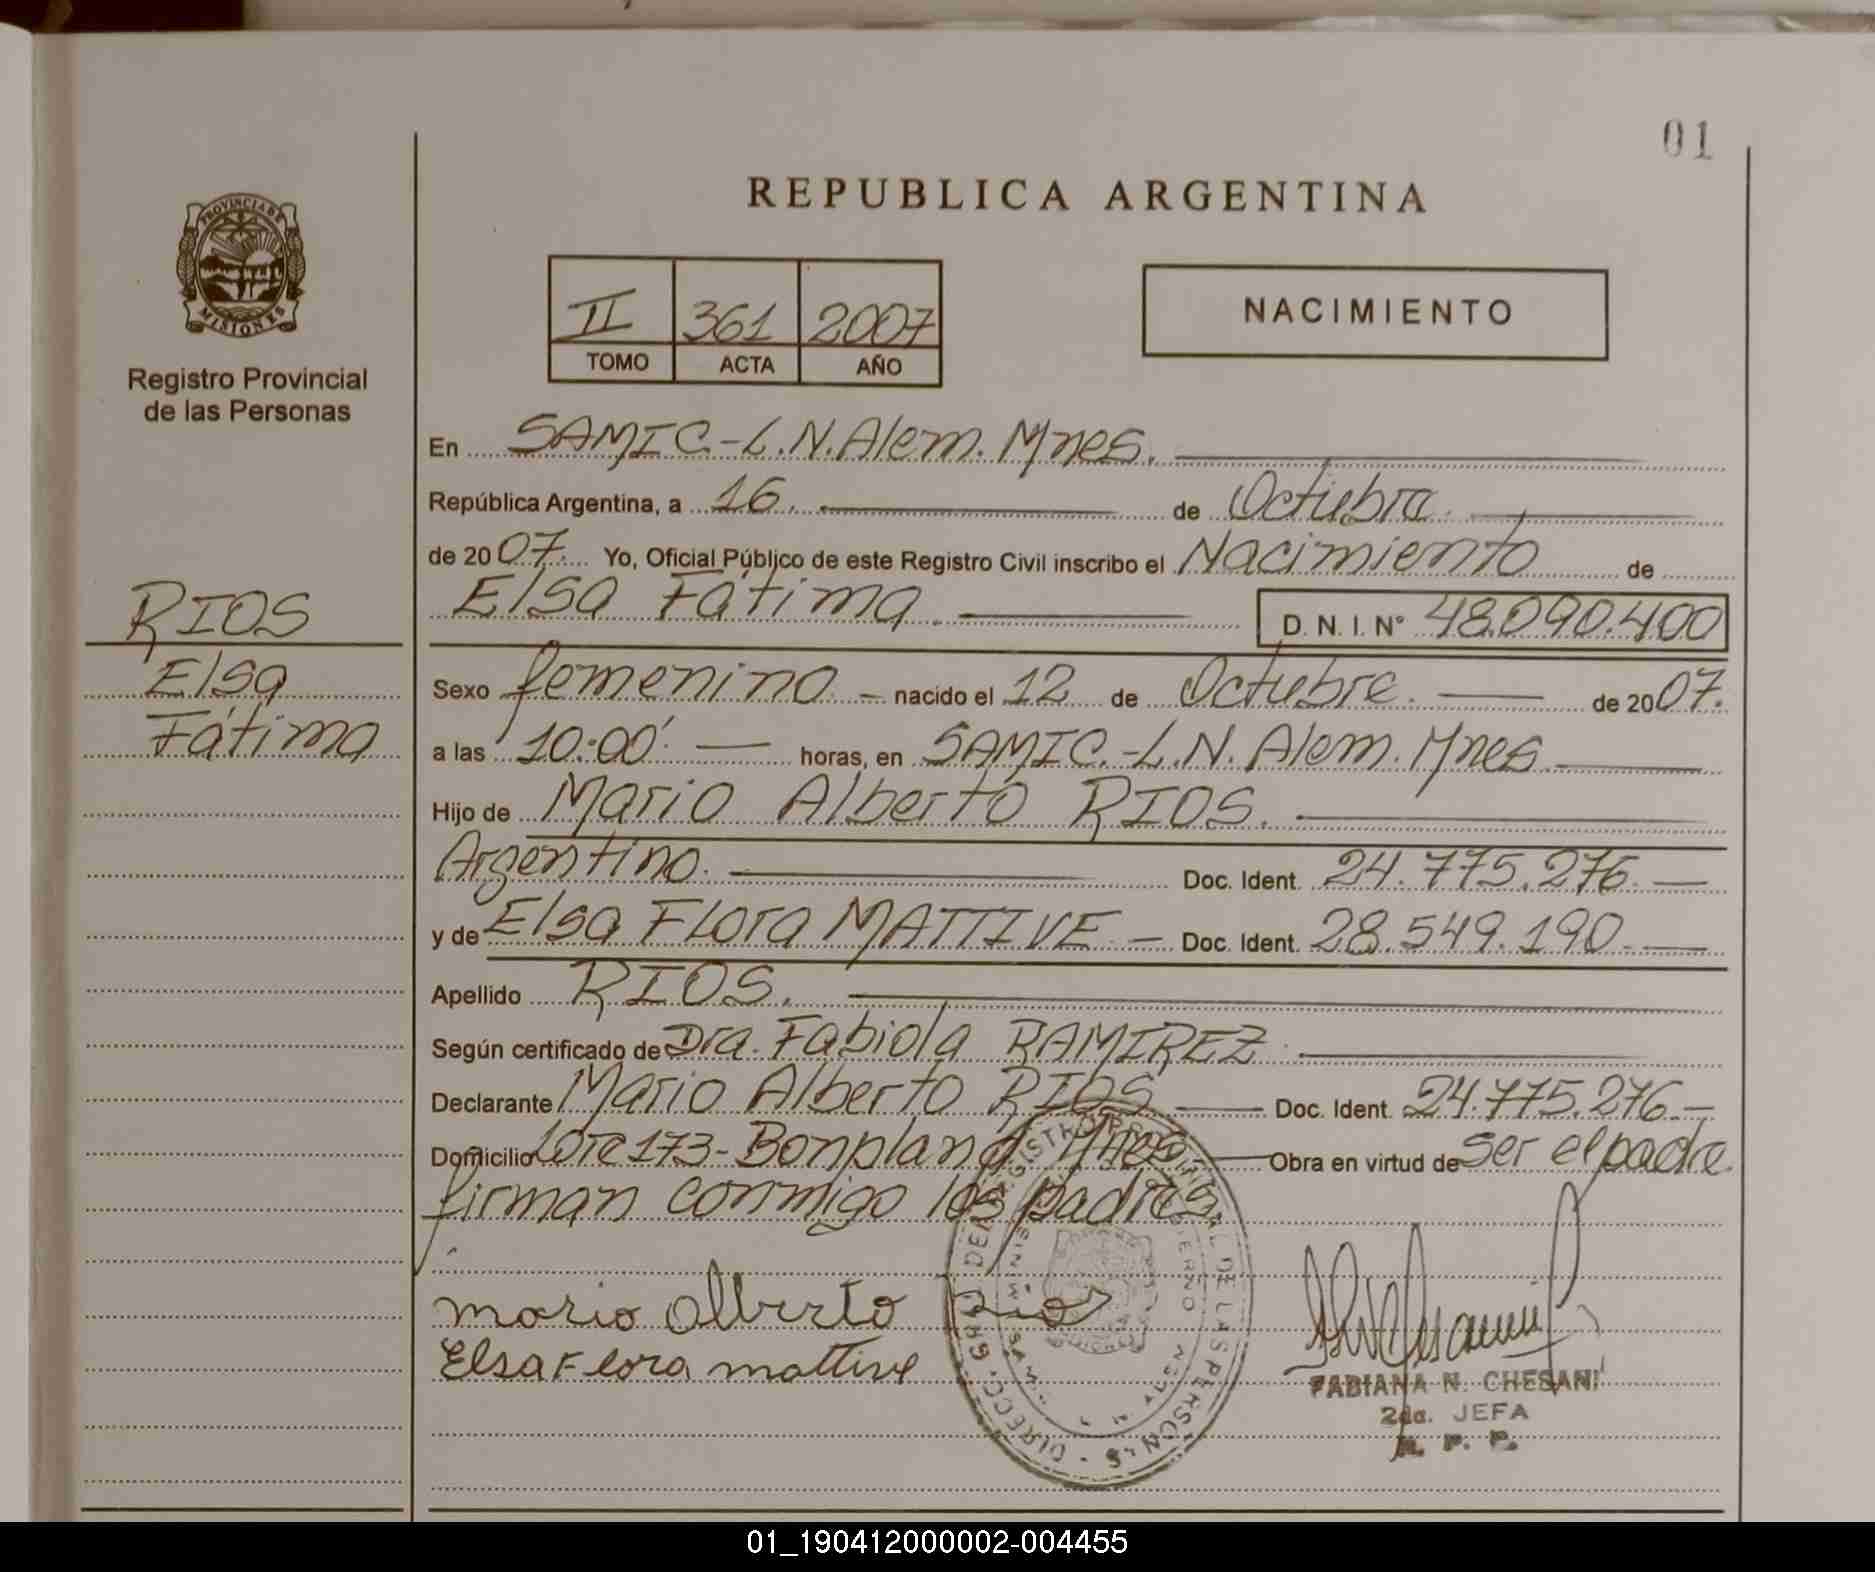 01
REPUBLICA ARGENTINA
PROVINCIA DE
MISIONES
Registro Provincial
de las Personas
II 361 2007
TOMO ACTA AÑO
NACIMIENTO
RIOS
Elsa
Fátima
En SAMIC.-L.N.Alem. Mnes.
República Argentina, a 16. de Octubre.
de 2007. Yo, Oficial Público de este Registro Civil inscribo el Nacimiento de
Elsa Fátima. D.N.I.N° 48.090.400
Sexo femenino - nacido el 12 de Octubre. de 2007.
a las 10:00'. horas, en SAMIC.-L.N. Alem. Mnes
Hijo de Mario Alberto RIOS.
Argentino. Doc. Ident. 24.775.276.
y de Elsa Flora MATTIVE - Doc. Ident. 28.549.190.
Apellido RIOS.
Según certificado de Dra. Fabiola RAMIREZ.
Declarante Mario Alberto RIOS Doc. Ident. 24.775.276.-
Domicilio Lote 173-Bonpland Mnes Obra en virtud de ser el padre.
firman conmigo los padres.
mario alberto Rios
Elsa Flora mattive
FABIANA N. CHESANI
2da. JEFA
R. P. P.
01_190412000002-004455